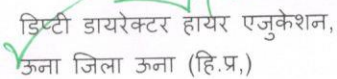 डिप्टी डायरेक्टर हायर एजुकेशन,
ऊना जिला ऊना (हि.प्र,)